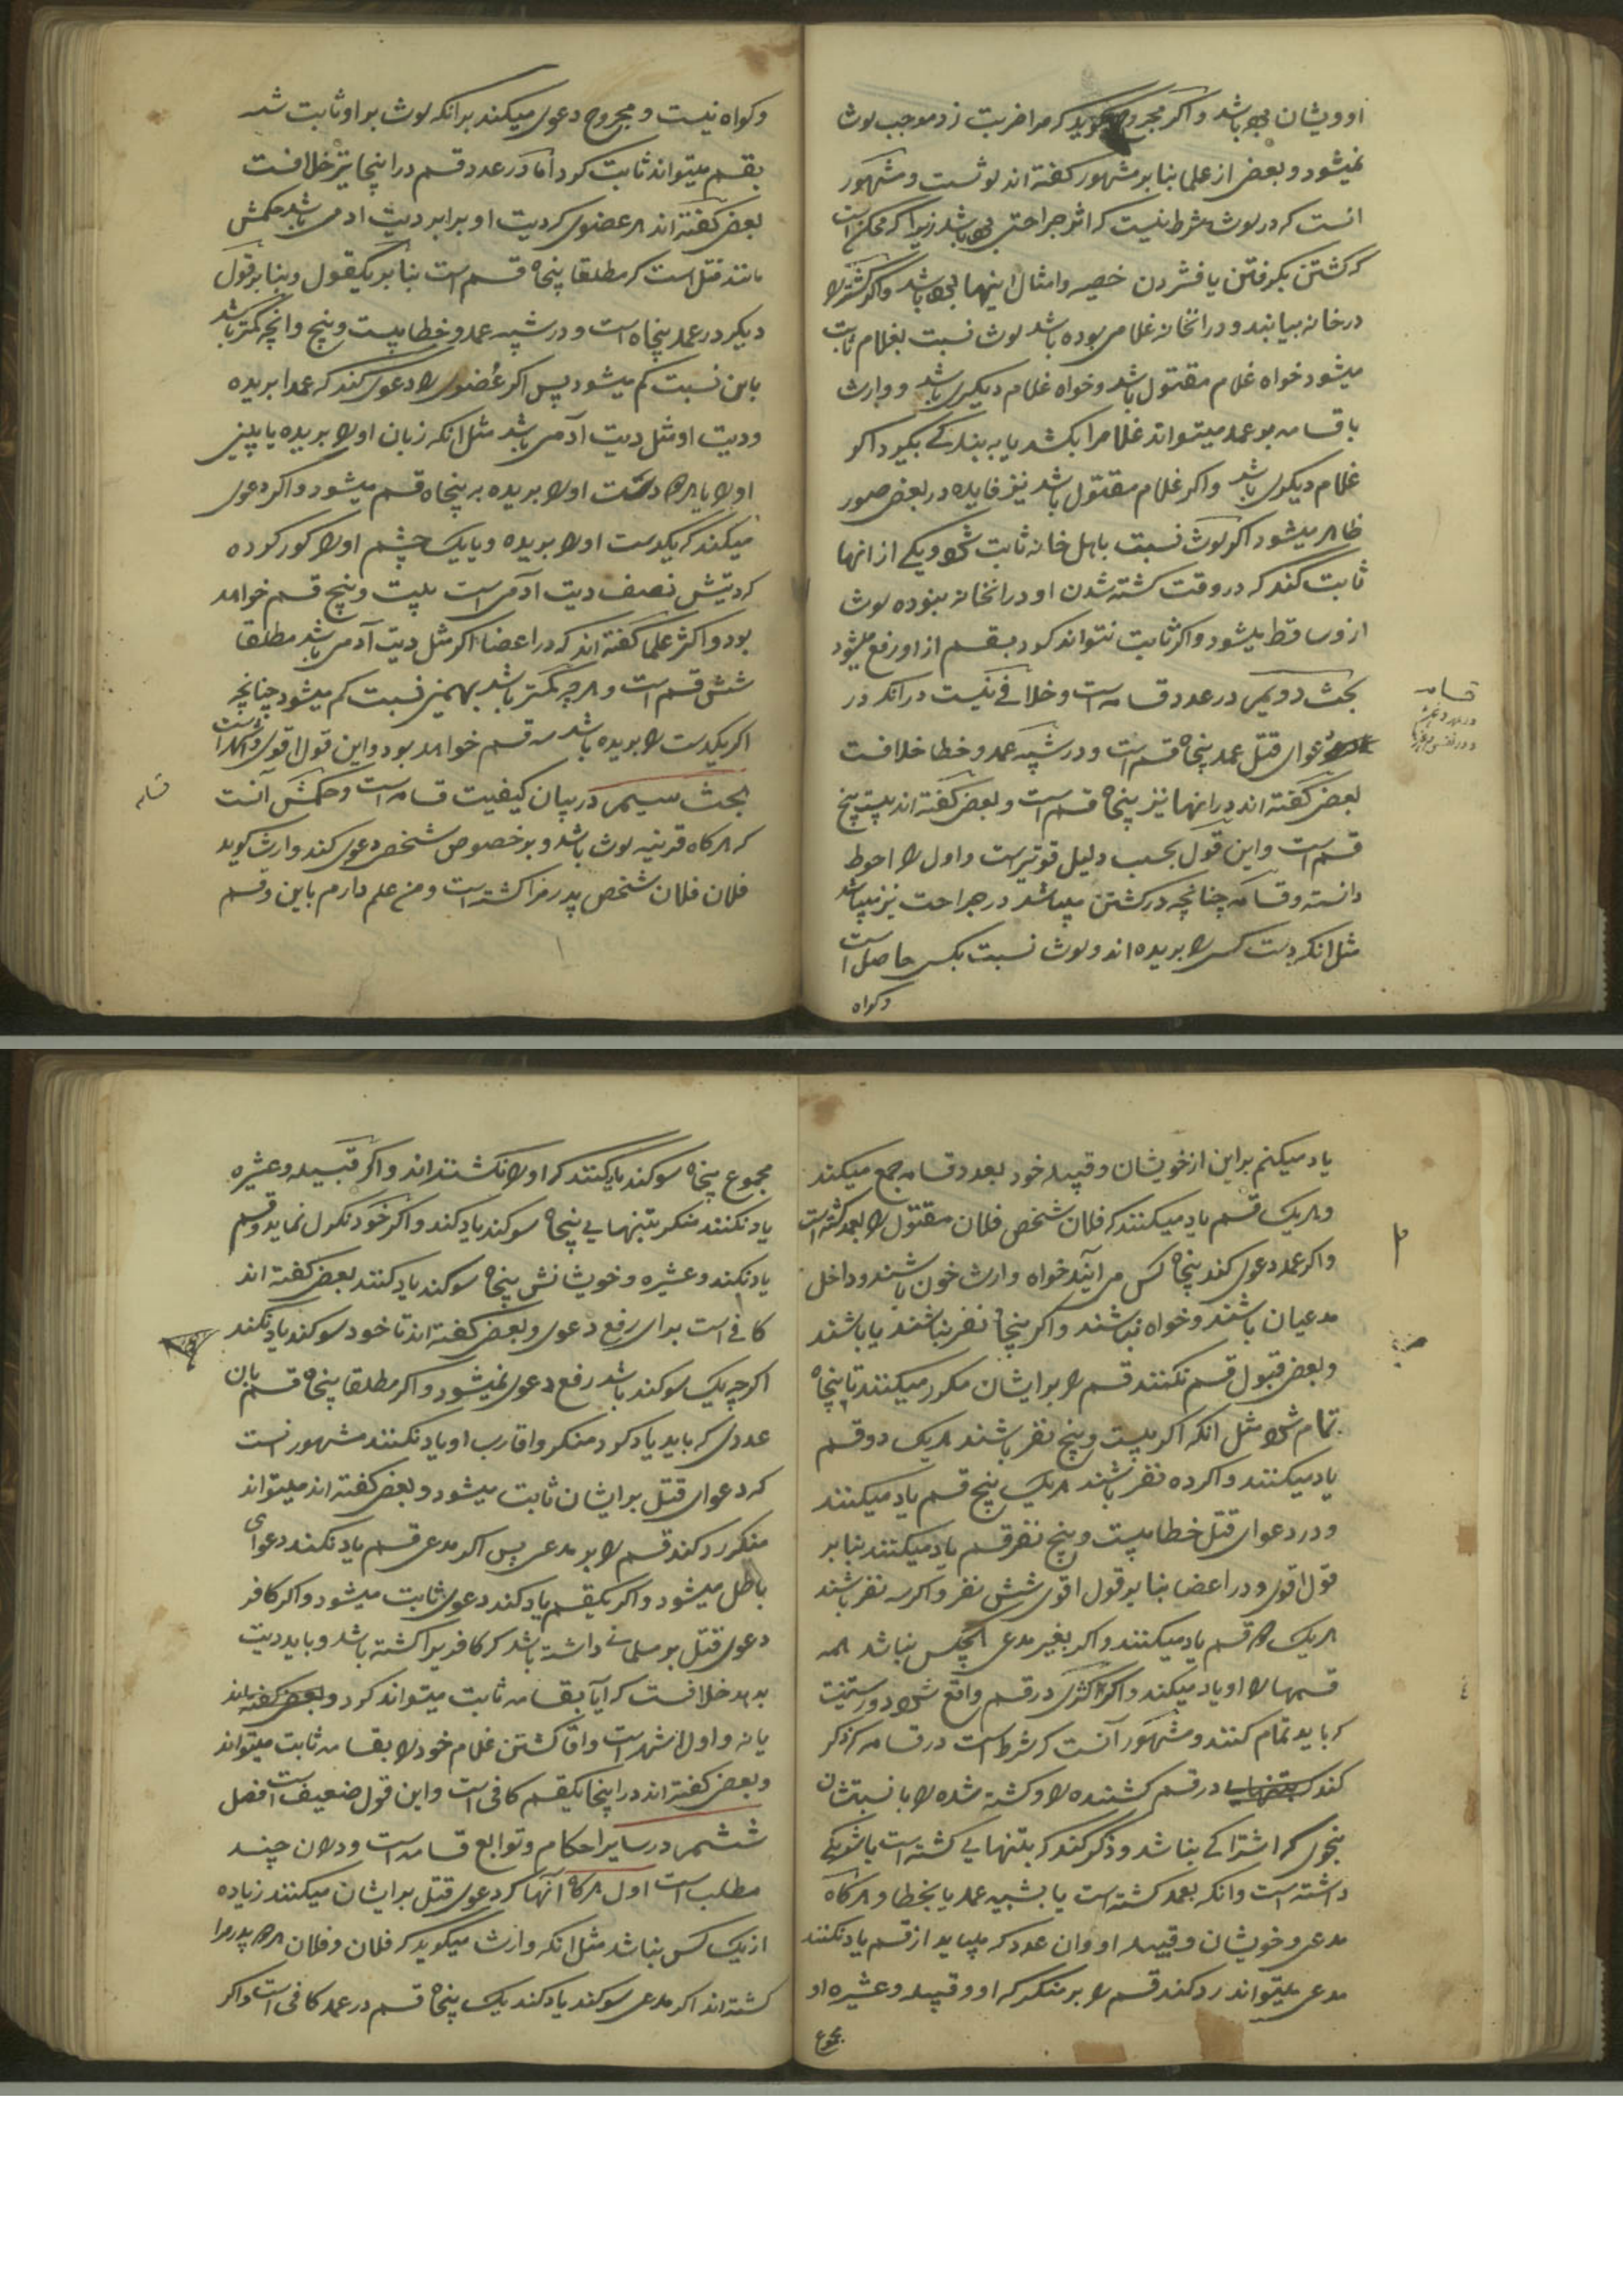 او ویشان بوده باشد واکر مجروح میکوید که مرا ضربت زد موجب لوث
نمیشود و بعضی از علما بنا بر مشهور کفته اند لوثست و مشهور
انست که در لوث شرط نیست که اثر جراحتی بوده باشد زیرا که ممکن است
که کشتن بکرفتن یا فشردن خصیه وامثال اینها بوده باشد واکر کشته را
در خانه بیابند و در انخانه غلامی بوده باشد لوث نسبت بغلام ثابت
میشود خواه غلام مقتول باشد وخواه غلام دیکری باشد و وارث
با قسامه بو عمد میتواند غلام را بکشد یا به بندکی بکیرد اکر
غلام دیکری باشد واکر غلام مقتول باشد نیز فایده در بعضی صور
ظاهر میشود اکر لوث نسبت باهل خانه ثابت شود ویکی از انها
ثابت کند که در وقت کشته شدن او در انخانه نبوده لوث
از وساقط میشود واکر ثابت نتواند کرد بقسم از او رفع میشود
بحث دویم در عدد قسامه است وخلافی نیست در آنکه در
دعوای قتل عمد پنجاه قسم است ودر شبیه عمد وخطا خلافست
بعضی کفته اند در اینها نیز پنجاه قسم است وبعضی کفته اند بیست پنج
قسم است واین قول بحسب دلیل قویترست واول را احوط
دانسته وقسامه چنانچه در کشتن میباشد در جراحت نیز میباشد
مثل انکه دست کسی را بریده اند ولوث نسبت بکسی حاصل است
وکواه
قسامه
وکواه نیست ومجروح دعوی میکند بر انکه لوث بر او ثابت شد
بقسم میتواند ثابت کرد اما در عدد قسم در اینجا نیز خلافست
بعضی کفته اند هر عضوی که دیت او برابر دیت ادمی باشد حکمش
مانند قتل است که مطلقا پنجاه قسم است بنا بر یکقول وبنا بر قول
دیکر در عمد پنجاه است ودر شبیه عمد وخطا بیست وپنج وانچه کمتر باشد
باین نسبت کم میشود پس اکر عضوی را دعوی کند که عمدا بریده
ودیت او مثل دیت آدمی باشد مثل انکه زبان او را بریده یا بینی
او را یا هر دو دست او را بریده بر پنجاه قسم میشود واکر دعوی
میکند که یکدست او را بریده ویا یک چشم او را کور کرده
که دیتش نصف دیت آدمی است بیست وپنج قسم خواهد
بود واکثر علما کفته اند که در اعضا اکر مثل دیت آدمی باشد مطلقا
شش قسم است وهر چه کمتر باشد بهمین نسبت کم میشود چنانچه
اکر یکدست را بریده باشد سه قسم خواهد بود واین قول اقوی واشهر است
بحث سیم در بیان کیفیت قسامه است وحکمش آنست
که هرکاه قرینه لوث باشد وبر خصوص شخصی دعوی کند وارث کوید
فلان فلان شخص پدر مرا کشته است ومن علم دارم باین وقسم
قسامه
یاد میکنم بر این از خویشان وقبیله خود بعدد قسامه جمع میکند
وهر یک قسم یاد میکنند که فلان شخص فلان مقتول را بعمد کشته است
واکر عمد دعوی کند پنجاه کس می آیند خواه وارث خون باشند وداخل
مدعیان باشند وخواه نباشند واکر پنجاه نفر نباشند یا باشند
وبعضی قبول قسم نکنند قسم را بر ایشان مکرر میکنند تا پنجاه
تمام شود مثل انکه اکر بیست وپنج نفر باشند هر یک دو قسم
یاد میکنند واکر ده نفر باشند هر یک پنج قسم یاد میکنند
ودر دعوای قتل خطا بیست وپنج نفر قسم یاد میکنند بنا بر
قول اقوی ودر اعضا بنا بر قول اقوی شش نفر واکر سه نفر باشند
هر یک دو قسم یاد میکنند واکر بغیر مدعی هیچکس نباشد همه
قسمها را او یاد میکند واکر در قسم واقع شود
که باید تمام کنند ومشهور آنست که شرط است در قسامه که ذکر
کند در قسم کشنده را وکشته شده را با نسبتشان
بنحوی که اشتراکی نباشد وذکر کند که بتنهایی کشته است یا شریکی
داشته است وانکه بعمد کشته است یا بشبیه عمد یا بخطا وهرکاه
مدعی وخویشان وقبیله او وان عدد که میباید از قسم یاد نکنند
مدعی میتواند رد کند قسم را بر منکر که او وقبیله وعشیره او
مجموع
مجموع پنجاه سوکند یاد کنند که او را نکشته اند واکر قبیله وعشیره
یاد نکنند منکر بتنهایی پنجاه سوکند یاد کند واکر خود نکول نماید وقسم
یاد نکند وعشیره وخویشانش پنجاه سوکند یاد کنند بعضی کفته اند
کافی است برای رفع دعوی وبعضی کفته اند تا خود سوکند یاد نکند
اکرچه یک سوکند باشد رفع دعوی نمیشود واکر مطلقا پنجاه قسم بان
عددی که باید یاد کرد منکر واقارب او یاد نکنند مشهور انست
که دعوای قتل بر ایشان ثابت میشود وبعضی کفته اند میتواند
منکر رد کند قسم را بر مدعی پس اکر مدعی قسم یاد نکند دعوای
باطل میشود واکر یکقسم یاد کند دعوی ثابت میشود واکر کافر
دعوی قتل بر مسلمانی داشته باشد که کافریرا کشته باشد وباید دیت
بدهد خلافست که آیا بقسامه ثابت میتواند کرد وبعضی کفته اند
یا نه واول اشهر است واقا کشتن غلام خود را بقسامه ثابت میتواند
وبعضی کفته اند در اینجا یکقسم کافی است واین قول ضعیف است فصل
ششم در سایر احکام وتوابع قسامه است ودران چند
مطلب است اول هرکاه آنها که دعوی قتل بر ایشان میکنند زیاده
از یک کس باشد مثل انکه وارث میکوید که فلان وفلان هر دو پدر مرا
کشته اند اکر مدعی سوکند یاد کند یک پنجاه قسم در عمد کافی است واکر